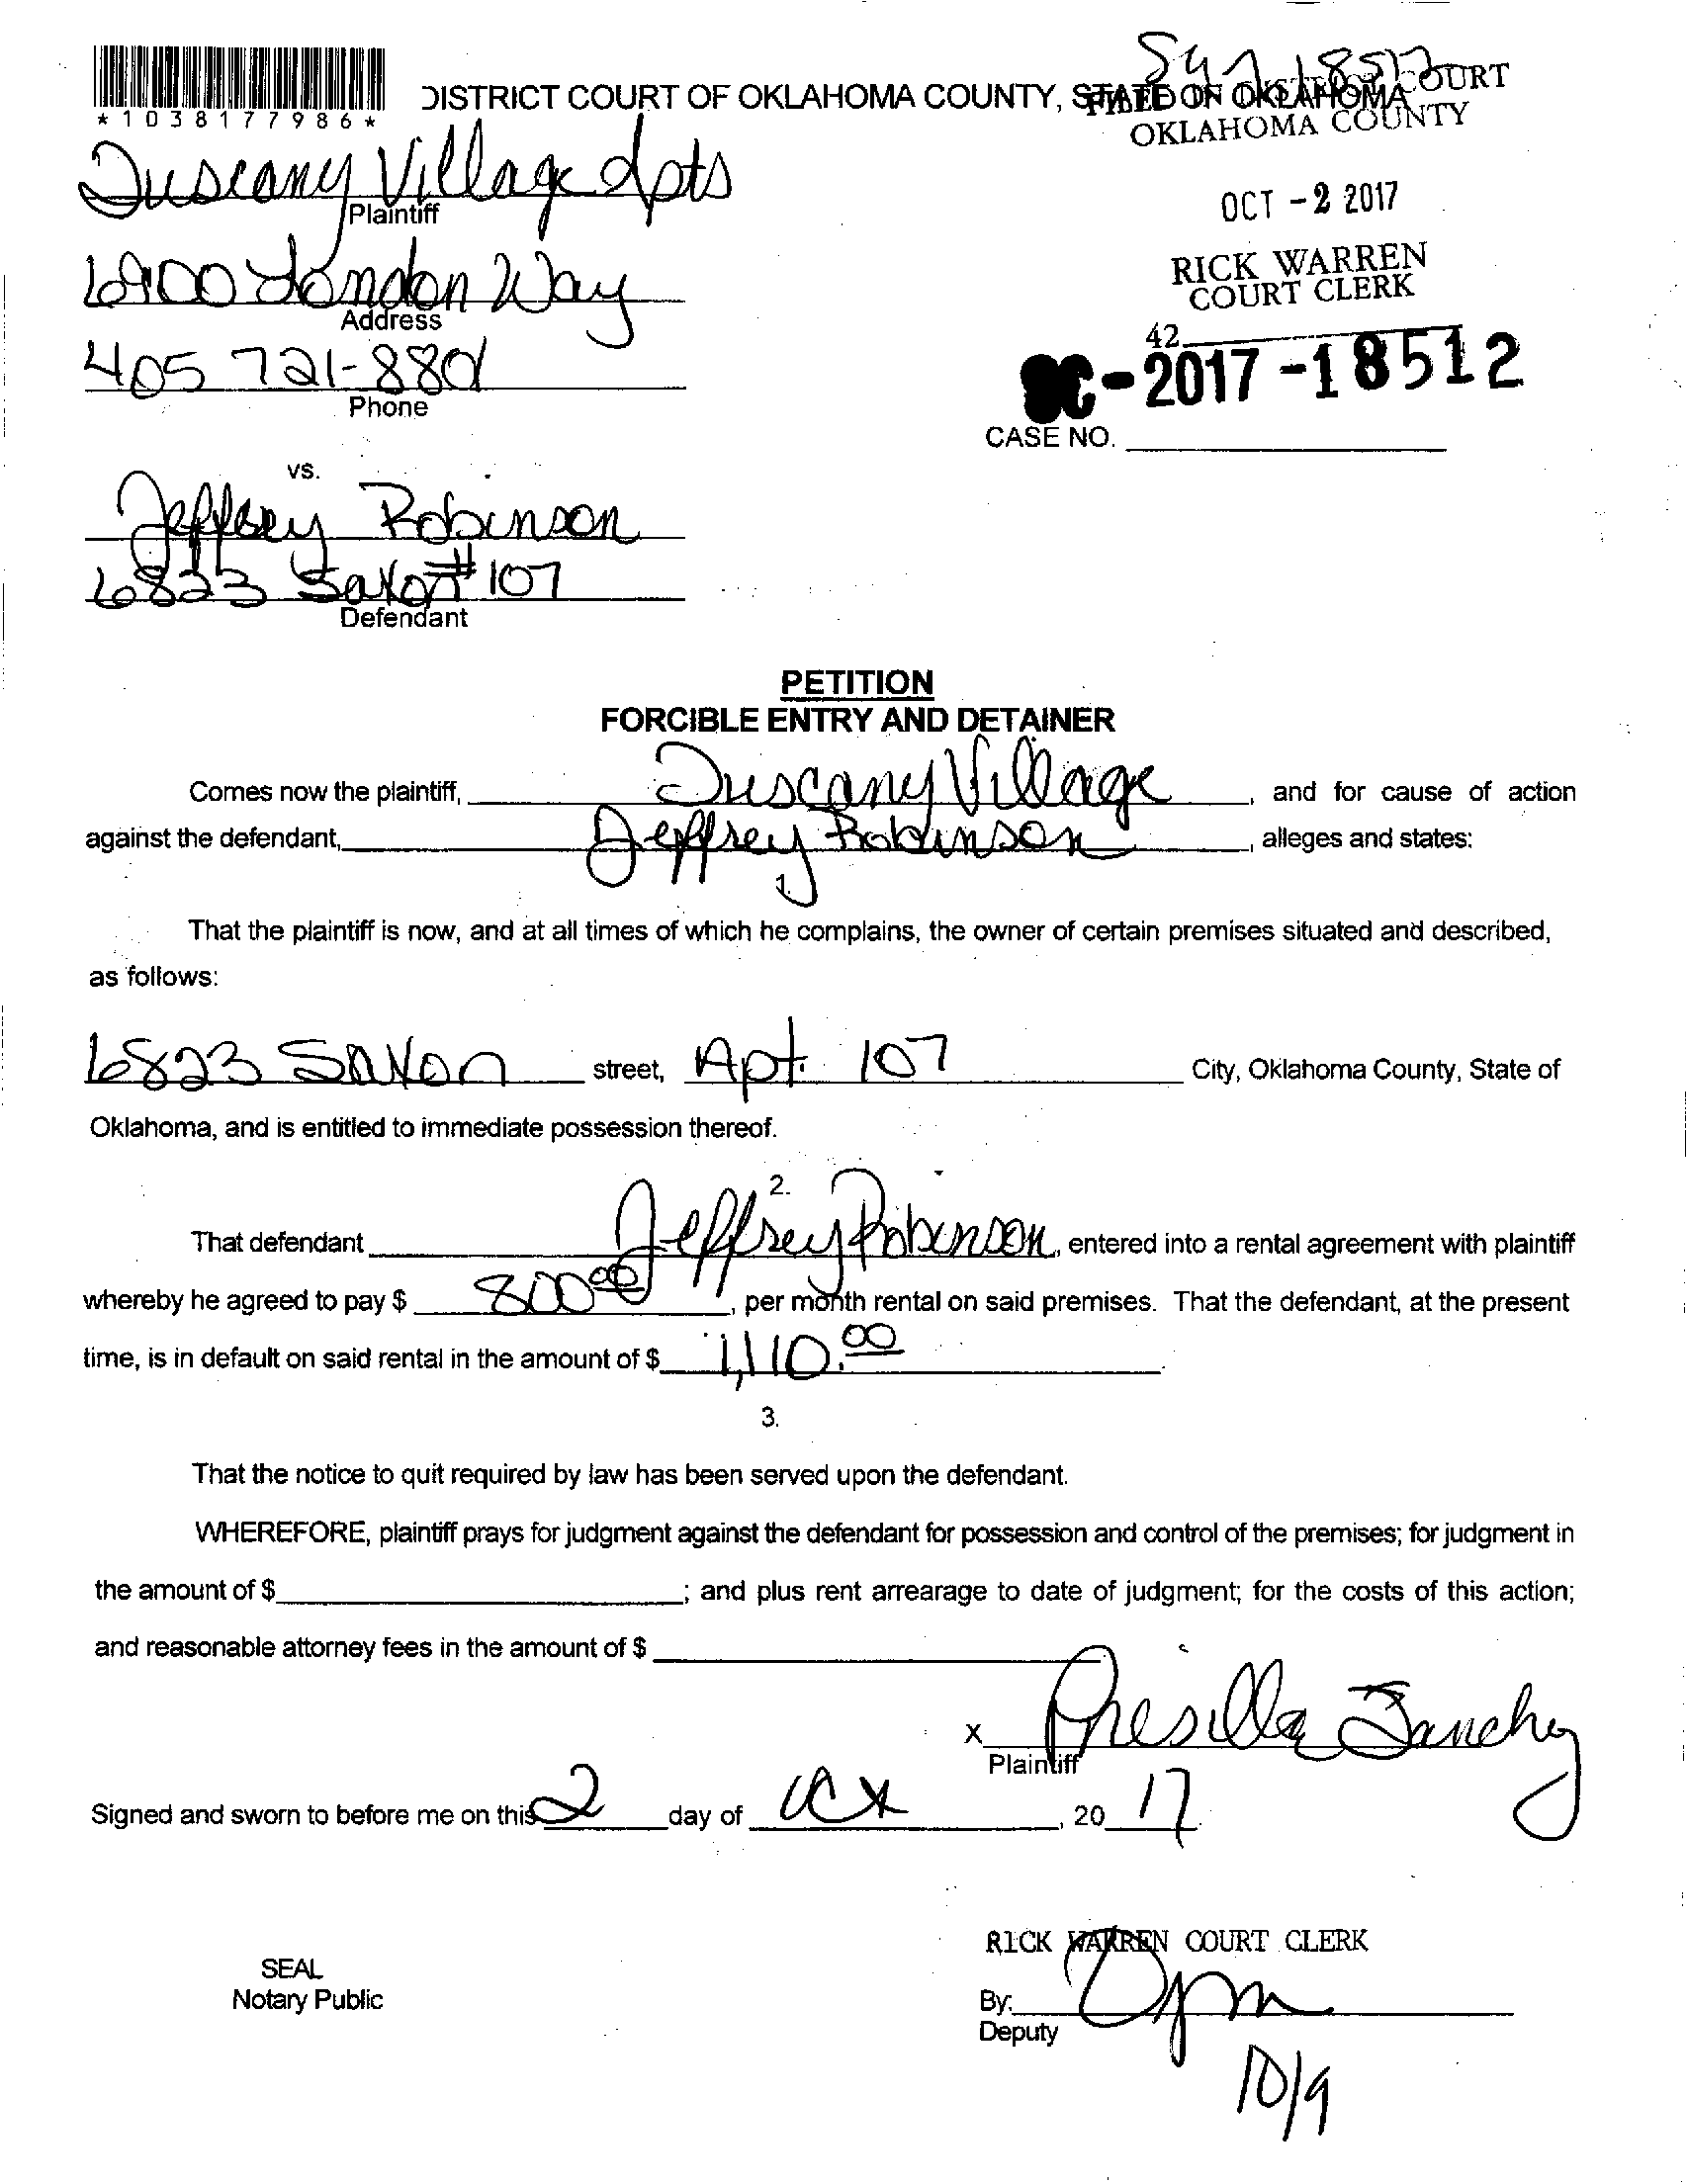 *1038177986*
DISTRICT COURT OF OKLAHOMA COUNTY, STATE OF OKLAHOMA
FILED IN DISTRICT COURT
OKLAHOMA COUNTY
OCT -2 2017
RICK WARREN
COURT CLERK
42
SC-2017-18512
CASE NO.
Tuscany Village Apts
Plaintiff
6900 London Way
Address
405 721-8801
Phone
vs.
Jeffrey Robinson
6823 Saxon #107
Defendant
PETITION
FORCIBLE ENTRY AND DETAINER
Comes now the plaintiff, Tuscany Village, and for cause of action
against the defendant, Jeffrey Robinson, alleges and states:
1.
That the plaintiff is now, and at all times of which he complains, the owner of certain premises situated and described,
as follows:
6823 Saxon street, Apt. 107 City, Oklahoma County, State of
Oklahoma, and is entitled to immediate possession thereof.
2.
That defendant Jeffrey Robinson, entered into a rental agreement with plaintiff
whereby he agreed to pay $ 800.00, per month rental on said premises. That the defendant, at the present
time, is in default on said rental in the amount of $ 1,110.00.
3.
That the notice to quit required by law has been served upon the defendant.
WHEREFORE, plaintiff prays for judgment against the defendant for possession and control of the premises; for judgment in
the amount of $ ; and plus rent arrearage to date of judgment; for the costs of this action;
and reasonable attorney fees in the amount of $
x Presilla Sanchez
Plaintiff
Signed and sworn to before me on this 2 day of Oct, 20 17.
RICK WARREN COURT CLERK
SEAL
Notary Public
By:
Deputy
10/9